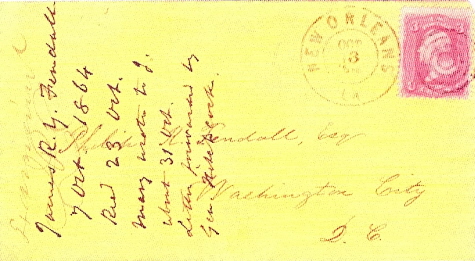 NEW ORLEANS
OCT
LA
James R. Y. Fendall
7 Oct 1864
Recd 23 Oct.
Mary wrote to J.
about 31 Oct.
Letter forwarded by
Genl Hitchcock.
Philip R. Fendall, Esq
Washington City
D. C.